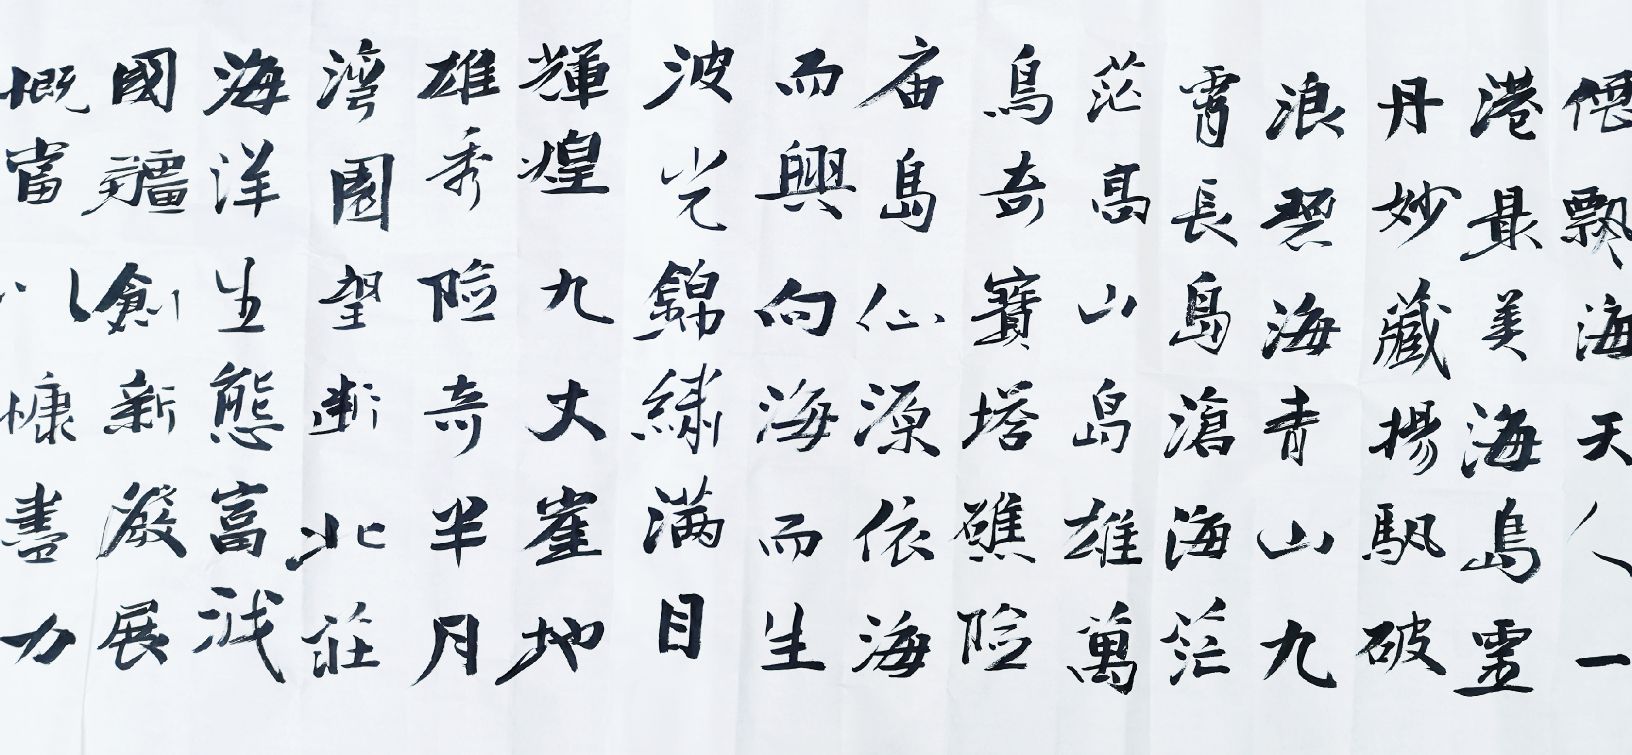 僊飘海天人一
港最美海島靈
丹妙藏揚帆破
浪碧海青山九
霄長島滄海茫
茫高山島雄萬
鳥奇寶塔礁險
庙島仙源依海
而興向海而生
波光錦繡满目
輝煌九丈崖地
雄秀險奇半月
灣園望断北莊
海洋生態富浅
國疆創新發展
慨當以慷盡力